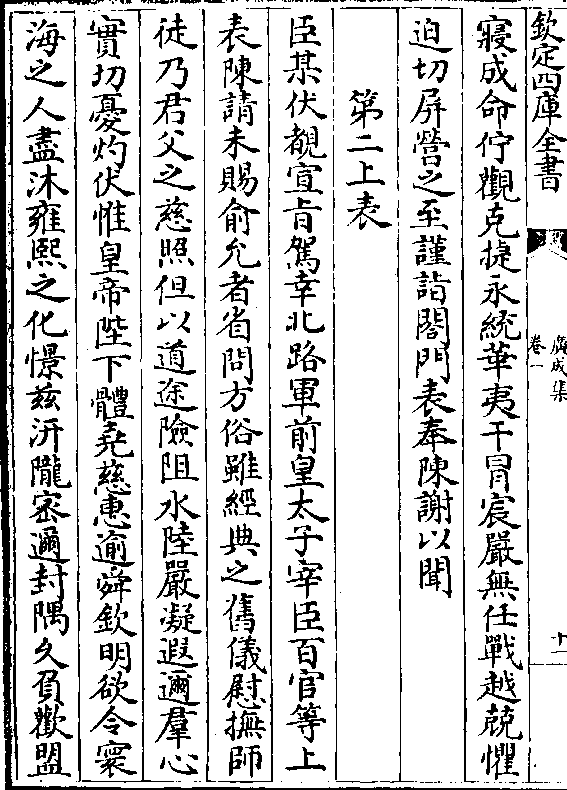 欽定四庫全書
廣成集
卷一
十一
寢成命佇觀克捷永統華夷干冒宸嚴無任戰越兢懼
迫切屏營之至謹詣閤門表奉陳謝以聞
第二上表
臣某伏覩宣旨駕幸北路軍前皇太子宰臣百官等上
表陳請未賜俞允者省問方俗雖經典之舊儀慰撫師
徒乃君父之慈照但以道途險阻水陸嚴凝遐邇羣心
實切憂灼伏惟皇帝陛下體堯慈惠逾舜欽明欲令寰
海之人盡沐雍熙之化憬茲汧隴密邇封隅久負歡盟